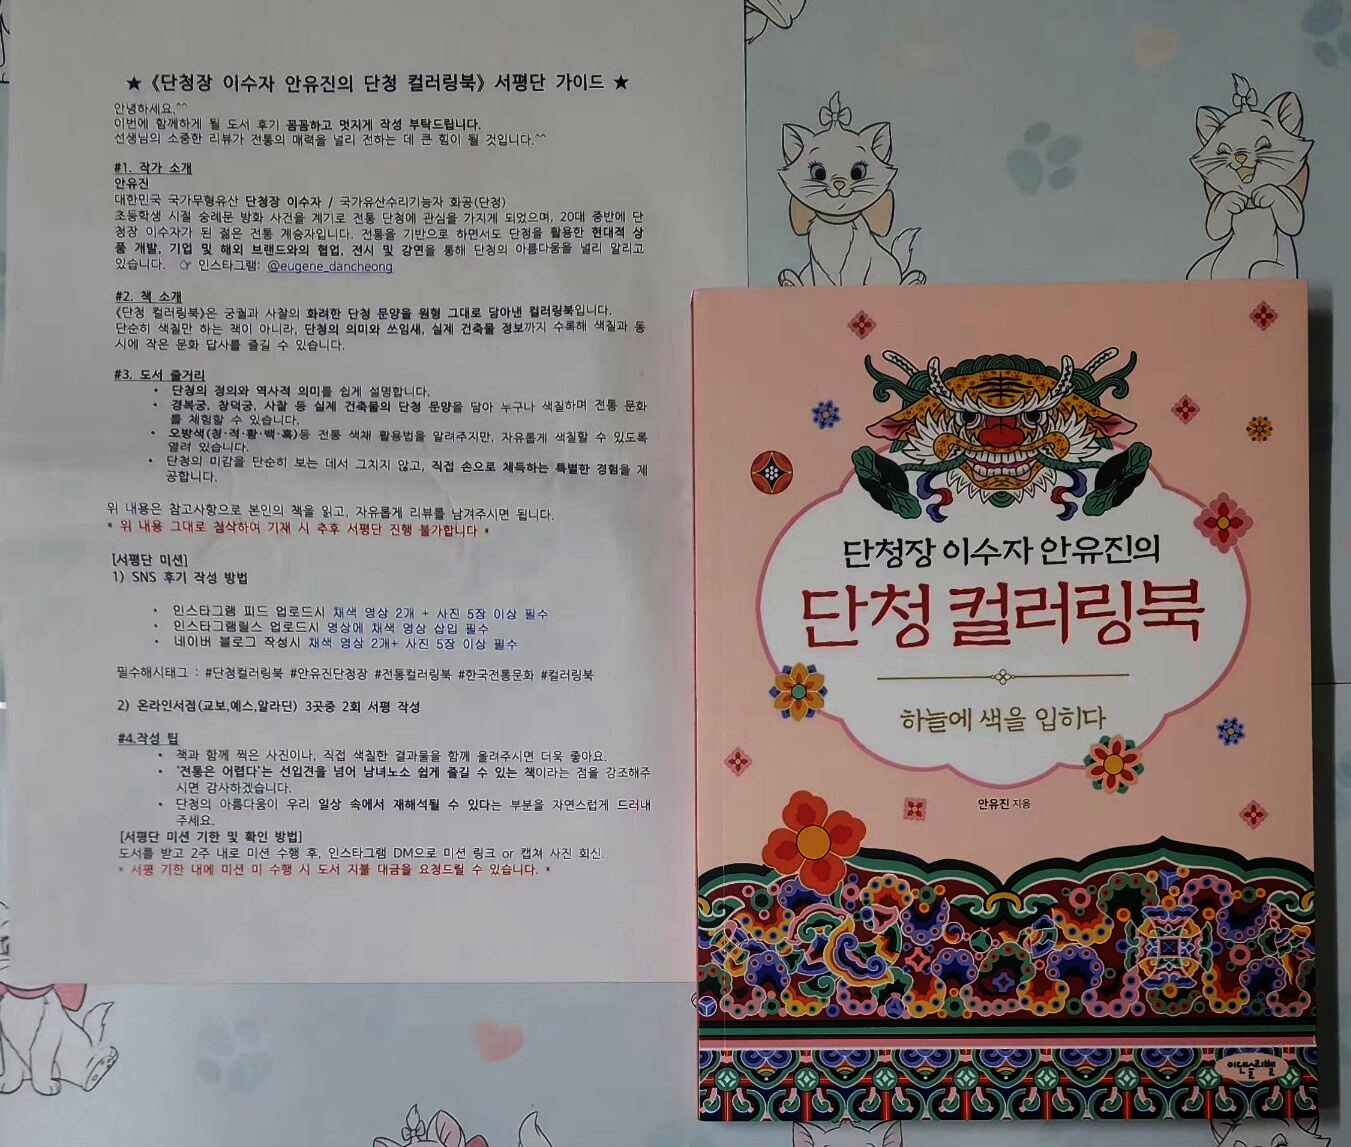 ★ 《단청장 이수자 안유진의 단청 컬러링북》 서평단 가이드 ★
안녕하세요.^^
이번에 함께하게 될 도서 후기 꼼꼼하고 멋지게 작성 부탁드립니다.
선생님의 소중한 리뷰가 전통의 매력을 널리 전하는 데 큰 힘이 될 것입니다.^^
#1. 작가 소개
안유진
대한민국 국가무형유산 단청장 이수자 / 국가유산수리기능자 화공(단청)
초등학생 시절 숭례문 방화 사건을 계기로 전통 단청에 관심을 가지게 되었으며, 20대 중반에 단
청장 이수자가 된 젊은 전통 계승자입니다. 전통을 기반으로 하면서도 단청을 활용한 현대적 상
품 개발, 기업 및 해외 브랜드와의 협업, 전시 및 강연을 통해 단청의 아름다움을 널리 알리고
있습니다. ☞ 인스타그램: @eugene_dancheong
#2. 책 소개
《단청 컬러링북》은 궁궐과 사찰의 화려한 단청 문양을 원형 그대로 담아낸 컬러링북입니다.
단순히 색칠만 하는 책이 아니라, 단청의 의미와 쓰임새, 실제 건축물 정보까지 수록해 색칠과 동
시에 작은 문화 답사를 즐길 수 있습니다.
#3. 도서 줄거리
• 단청의 정의와 역사적 의미를 쉽게 설명합니다.
• 경복궁, 창덕궁, 사찰 등 실제 건축물의 단청 문양을 담아 누구나 색칠하며 전통 문화
를 체험할 수 있습니다.
• 오방색(청·적·황·백·흑)등 전통 색채 활용법을 알려주지만, 자유롭게 색칠할 수 있도록
열려 있습니다.
• 단청의 미감을 단순히 보는 데서 그치지 않고, 직접 손으로 체득하는 특별한 경험을 제
공합니다.
위 내용은 참고사항으로 본인의 책을 읽고, 자유롭게 리뷰를 남겨주시면 됩니다.
* 위 내용 그대로 첨삭하여 기재 시 추후 서평단 진행 불가합니다 *
[서평단 미션]
1) SNS 후기 작성 방법
• 인스타그램 피드 업로드시 채색 영상 2개 + 사진 5장 이상 필수
• 인스타그램릴스 업로드시 영상에 채색 영상 삽입 필수
• 네이버 블로그 작성시 채색 영상 2개+ 사진 5장 이상 필수
필수해시태그 : #단청컬러링북 #안유진단청장 #전통컬러링북 #한국전통문화 #컬러링북
2) 온라인서점(교보,예스,알라딘) 3곳중 2회 서평 작성
#4.작성 팁
• 책과 함께 찍은 사진이나, 직접 색칠한 결과물을 함께 올려주시면 더욱 좋아요.
• '전통은 어렵다'는 선입견을 넘어 남녀노소 쉽게 즐길 수 있는 책이라는 점을 강조해주
시면 감사하겠습니다.
• 단청의 아름다움이 우리 일상 속에서 재해석될 수 있다는 부분을 자연스럽게 드러내
주세요.
[서평단 미션 기한 및 확인 방법]
도서를 받고 2주 내로 미션 수행 후, 인스타그램 DM으로 미션 링크 or 캡쳐 사진 회신.
* 서평 기한 내에 미션 미 수행 시 도서 지불 대금을 요청드릴 수 있습니다. *
단청장 이수자 안유진의
단청 컬러링북
하늘에 색을 입히다
안유진 지음
이덴슬리벨